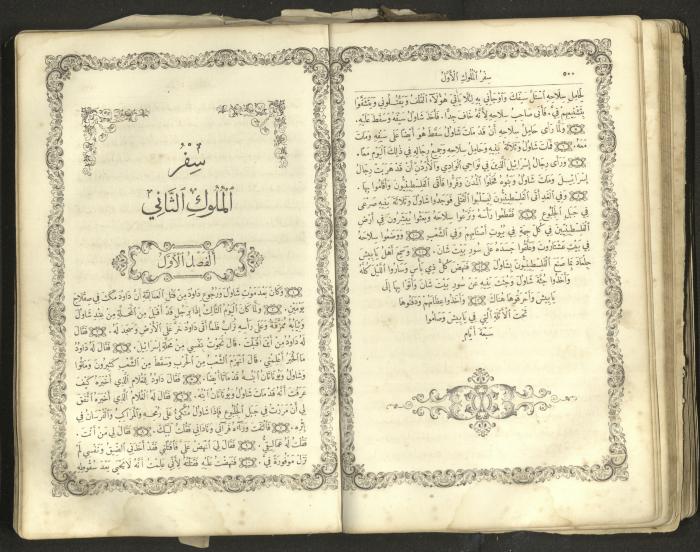 سِفْرُ المُلُوكِ الأَوَّلُ ٥٠٠
لِحَامِلِ سِلَاحِهِ اسْتَلَّ سَيْفَكَ وَأَوْجَأْنِي بِهِ لِئَلَّا يَأْتِيَ هٰؤُلَاءِ الْقُلْفُ وَيَقْتُلُونِي وَيَشْتَفُوا
فَأَبَى صَاحِبُ سِلَاحِهِ لِأَنَّهُ خَافَ جِدًّا. فَأَخَذَ شَاوُلُ سَيْفَهُ وَسَقَطَ عَلَيْهِ.
وَلَمَّا رَأَى حَامِلُ سِلَاحِهِ أَنْ قَدْ مَاتَ شَاوُلُ سَقَطَ هُوَ أَيْضًا عَلَى سَيْفِهِ وَمَاتَ
مَعَهُ. فَمَاتَ شَاوُلُ وَثَلَاثَةُ بَنِيهِ وَحَامِلُ سِلَاحِهِ وَجَمِيعُ رِجَالِهِ فِي ذٰلِكَ الْيَوْمِ مَعًا.
وَرَأَى رِجَالُ إِسْرَائِيلَ الَّذِينَ فِي نَوَاحِي الْوَادِي وَالْأُرْدُنِّ أَنْ قَدْ هَرَبَ رِجَالُ
إِسْرَائِيلَ وَمَاتَ شَاوُلُ وَبَنُوهُ فَخَلَّوُا الْمُدُنَ وَفَرُّوا فَأَتَى الْفَلِسْطِينِيُّونَ وَأَقَامُوا بِهَا.
وَفِي الْغَدِ أَتَى الْفَلِسْطِينِيُّونَ لِيَسْلُبُوا الْقَتْلَى فَوَجَدُوا شَاوُلَ وَثَلَاثَةَ بَنِيهِ صَرْعَى
فِي جَبَلِ الْجِلْبُوعِ. فَقَطَعُوا رَأْسَهُ وَنَزَعُوا سِلَاحَهُ وَبَعَثُوا يُبَشِّرُونَ فِي أَرْضِ
الْفَلِسْطِينِيِّينَ فِي كُلِّ جِهَةٍ فِي بُيُوتِ أَصْنَامِهِمْ وَفِي الشَّعْبِ. وَوَضَعُوا سِلَاحَهُ
فِي بَيْتِ عَشْتَارُوتَ وَعَلَّقُوا جَسَدَهُ عَلَى سُورِ بَيْتِ شَانَ. وَسَمِعَ أَهْلُ يَابِيشَ
جِلْعَادَ بِمَا صَنَعَ الْفَلِسْطِينِيُّونَ بِشَاوُلَ. فَنَهَضَ كُلُّ ذِي بَأْسٍ وَسَارُوا اللَّيْلَ كُلَّهُ
وَأَخَذُوا جُثَّةَ شَاوُلَ وَجُثَثَ بَنِيهِ عَنْ سُورِ بَيْتِ شَانَ وَأَتَوْا بِهَا إِلَى
يَابِيشَ وَأَحْرَقُوهَا هُنَاكَ. وَأَخَذُوا عِظَامَهُمْ وَدَفَنُوهَا
تَحْتَ الْأَثْلَةِ الَّتِي فِي يَابِيشَ وَصَامُوا
سَبْعَةَ أَيَّامٍ
سِفْرُ
الْمُلُوكِ الثَّانِي
الْفَصْلُ الْأَوَّلُ
وَكَانَ بَعْدَ مَوْتِ شَاوُلَ وَرُجُوعِ دَاوُدَ مِنْ قَتْلِ الْعَمَالِقَةِ أَنَّ دَاوُدَ مَكَثَ فِي صِقْلَاجَ
يَوْمَيْنِ. وَلَمَّا كَانَ الْيَوْمُ الثَّالِثُ إِذَا بِرَجُلٍ قَدْ أَقْبَلَ مِنَ الْمَحَلَّةِ مِنْ عِنْدِ شَاوُلَ
وَثِيَابُهُ مُمَزَّقَةٌ وَعَلَى رَأْسِهِ تُرَابٌ فَلَمَّا أَتَى دَاوُدَ خَرَّ عَلَى الْأَرْضِ وَسَجَدَ لَهُ. فَقَالَ
لَهُ دَاوُدُ مِنْ أَيْنَ أَقْبَلْتَ. قَالَ نَجَوْتُ بِنَفْسِي مِنْ مَحَلَّةِ إِسْرَائِيلَ. فَقَالَ لَهُ دَاوُدُ
مَا الْخَبَرُ أَعْلِمْنِي. قَالَ انْهَزَمَ الشَّعْبُ مِنَ الْحَرْبِ وَسَقَطَ مِنَ الشَّعْبِ كَثِيرُونَ وَمَاتُوا
وَشَاوُلُ وَيُونَاتَانُ ابْنُهُ قَدْ مَاتَا أَيْضًا. فَقَالَ دَاوُدُ لِلْغُلَامِ الَّذِي أَخْبَرَهُ كَيْفَ
عَرَفْتَ أَنَّهُ قَدْ مَاتَ شَاوُلُ وَيُونَاتَانُ ابْنُهُ. فَقَالَ لَهُ الْغُلَامُ الَّذِي أَخْبَرَهُ اتَّفَقَ
لِي أَنْ مَرَرْتُ فِي جَبَلِ الْجِلْبُوعِ فَإِذَا شَاوُلُ مُتَّكِئٌ عَلَى رُمْحِهِ وَالْمَرَاكِبُ وَالْفُرْسَانُ فِي
إِثْرِهِ. فَالْتَفَتَ وَرَاءَهُ فَرَآنِي وَنَادَانِي فَقُلْتُ لَبَّيْكَ. فَقَالَ لِي مَنْ أَنْتَ.
فَقُلْتُ لَهُ عَمَالِيقِيٌّ. فَقَالَ لِي انْهَضْ عَلَيَّ فَاقْتُلْنِي فَقَدْ أَخَذَنِي الضِّيقُ وَنَفْسِي لَمْ
تَزَلْ مَوْفُورَةً فِيَّ. فَنَهَضْتُ عَلَيْهِ فَقَتَلْتُهُ لِأَنِّي عَلِمْتُ أَنَّهُ لَا يَحْيَى بَعْدَ سُقُوطِهِ